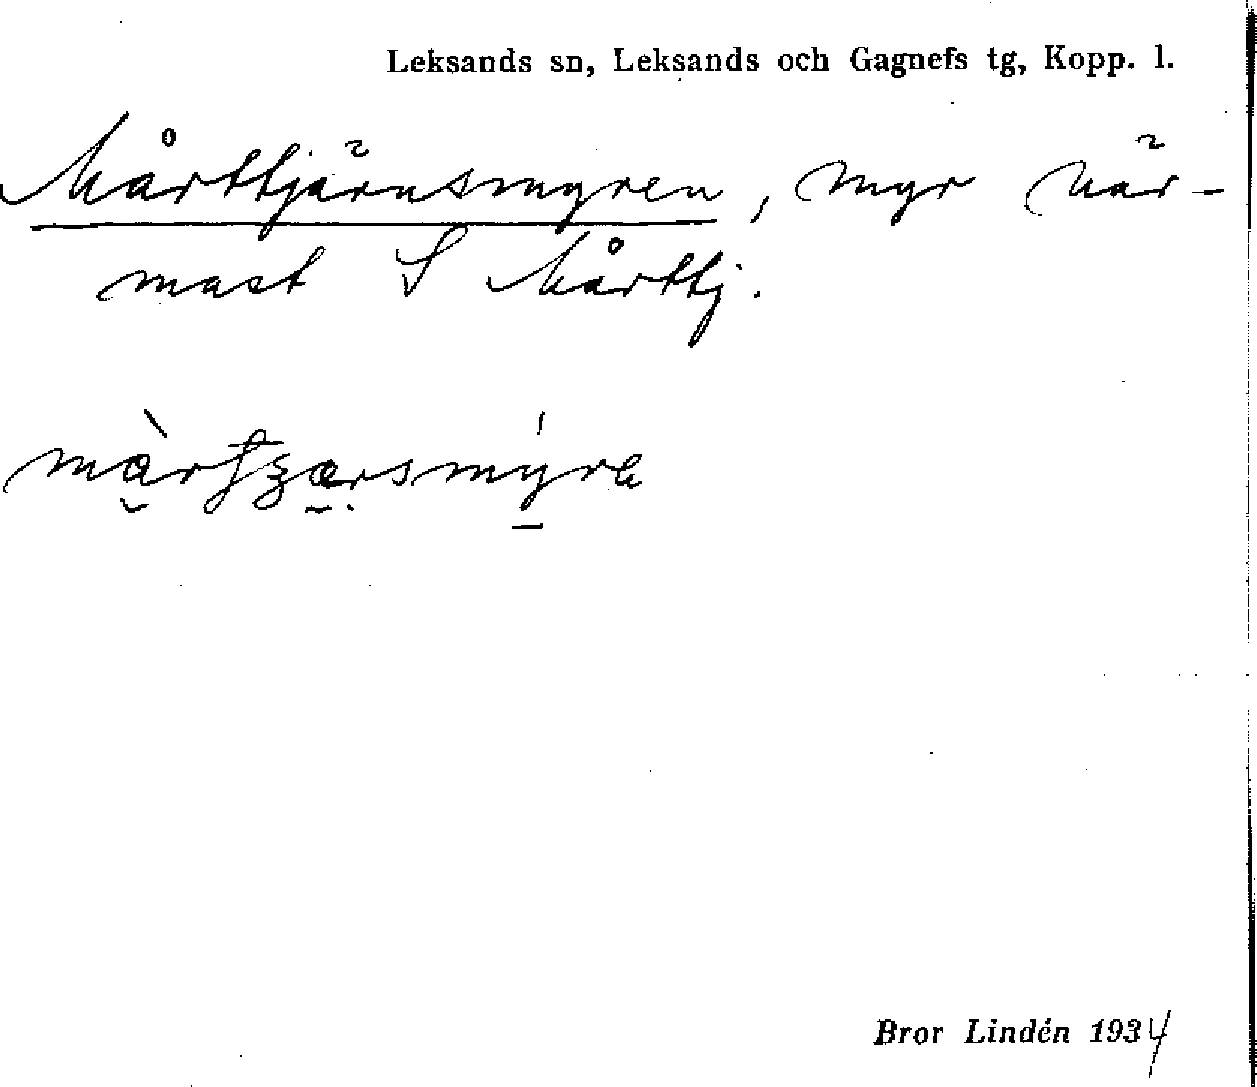 Leksands sn, Leksands och Gagnefs tg, Kopp. l.
Mårttjärnsmyren, myr när-
mast S Mårttj.
Bror Lindén 1934